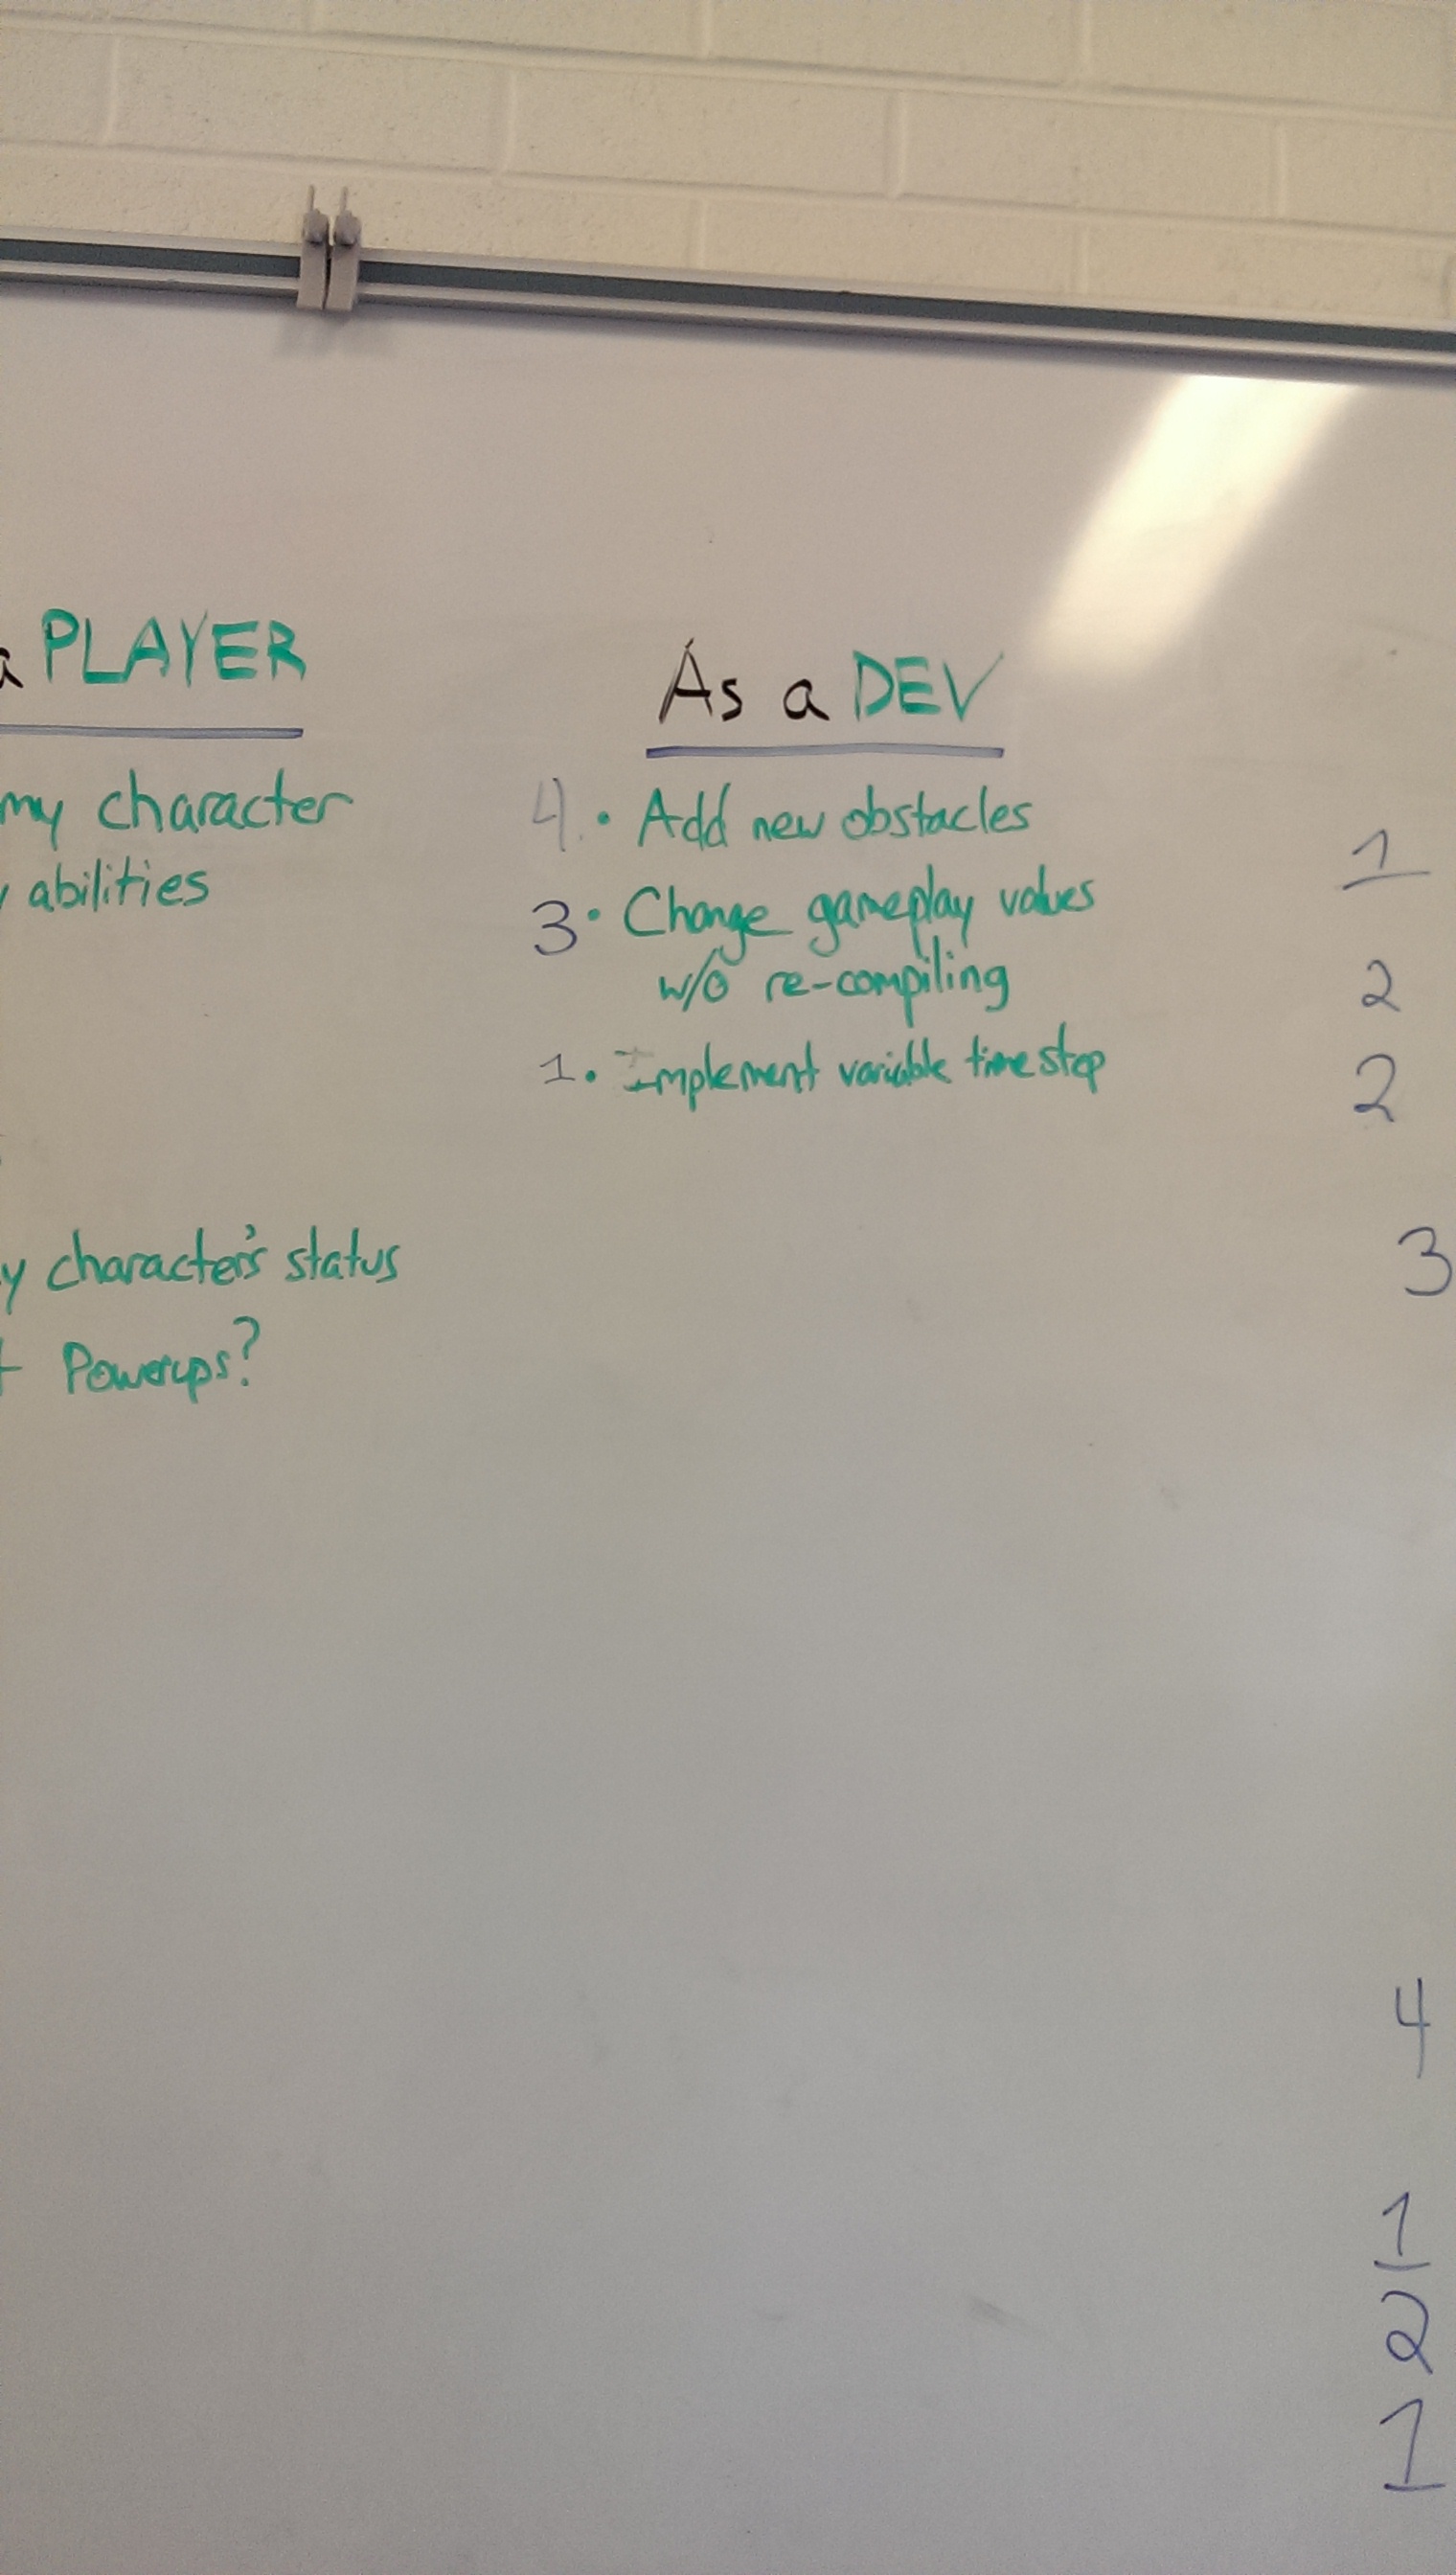 a PLAYER
my character
y abilities
y character's status
t Powerups?
As a DEV
4. • Add new obstacles
3 • Change gameplay values
w/o re-compiling
1. Implement variable timestep
1
2
2
3
4
1
2
1